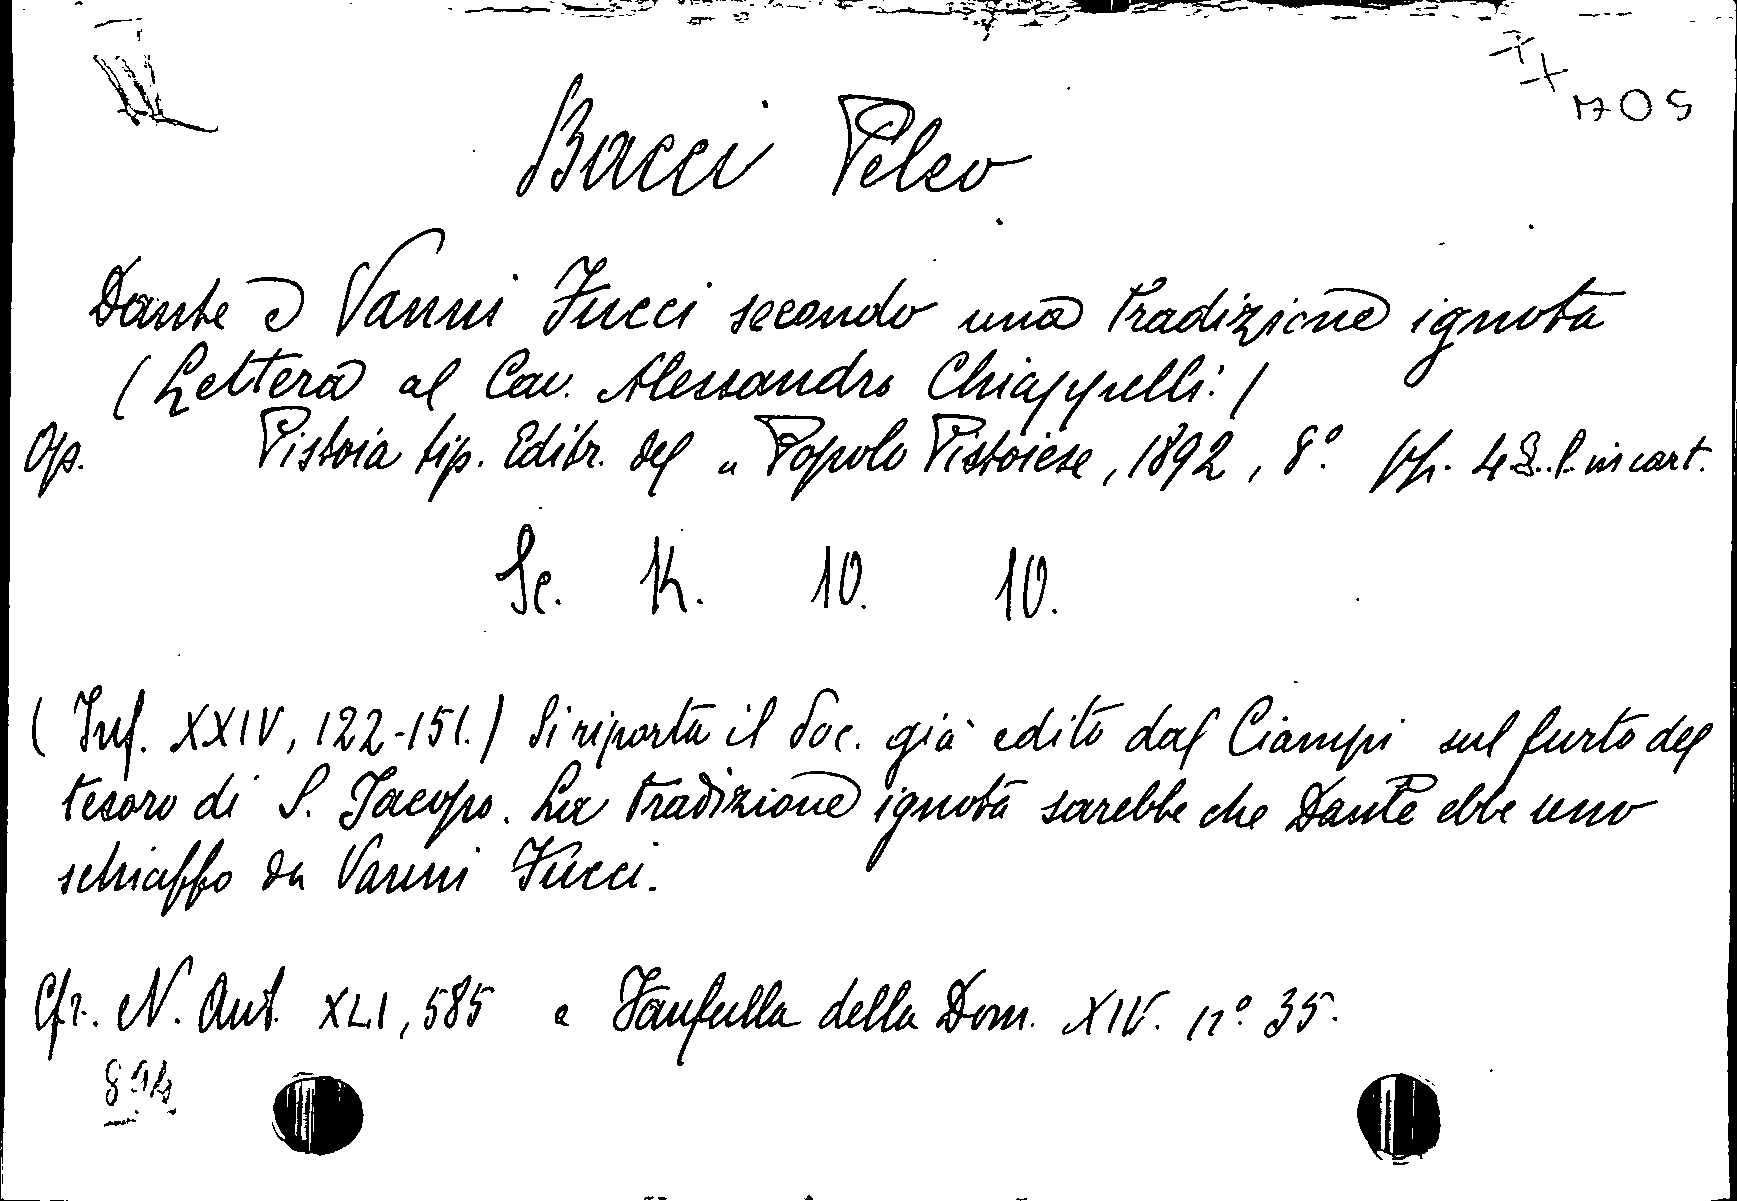 XX
1705
Bacci Peleo
Dante e Vanni Fucci secondo una tradizione ignota
(Lettera al Cav. Alessandro Chiappelli.)
Op. Pistoia tip. Editr. del "Popolo Pistoiese, 1892, 8°. pp. in cart.
Sc. K. 10. 10.
(Inf. XXIV, 122-151.) Si riporta il doc. già edito dal Ciampi sul furto del
tesoro di S. Jacopo. La tradizione ignota sarebbe che Dante ebbe uno
schiaffo da Vanni Fucci.
Cfr. N. Ant. XLI, 585 e Fanfulla della Dom. XIV. n° 35.